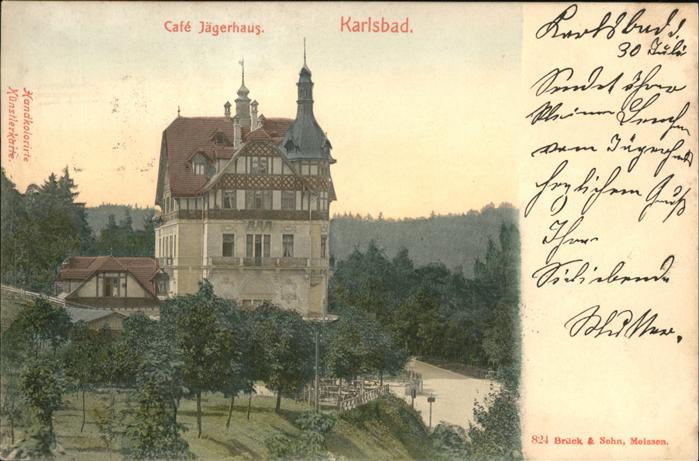 Café Jägerhaus.
Karlsbad.
Handkolorirte
Künstlerkarte.
Karlsbad,
30 Juli
Sendet ihrer
kleinen
vom Jägerhaus
herzlichen Gruß
Ihre
Sie liebende
Mutter.
824 Brück & Sohn, Meissen.